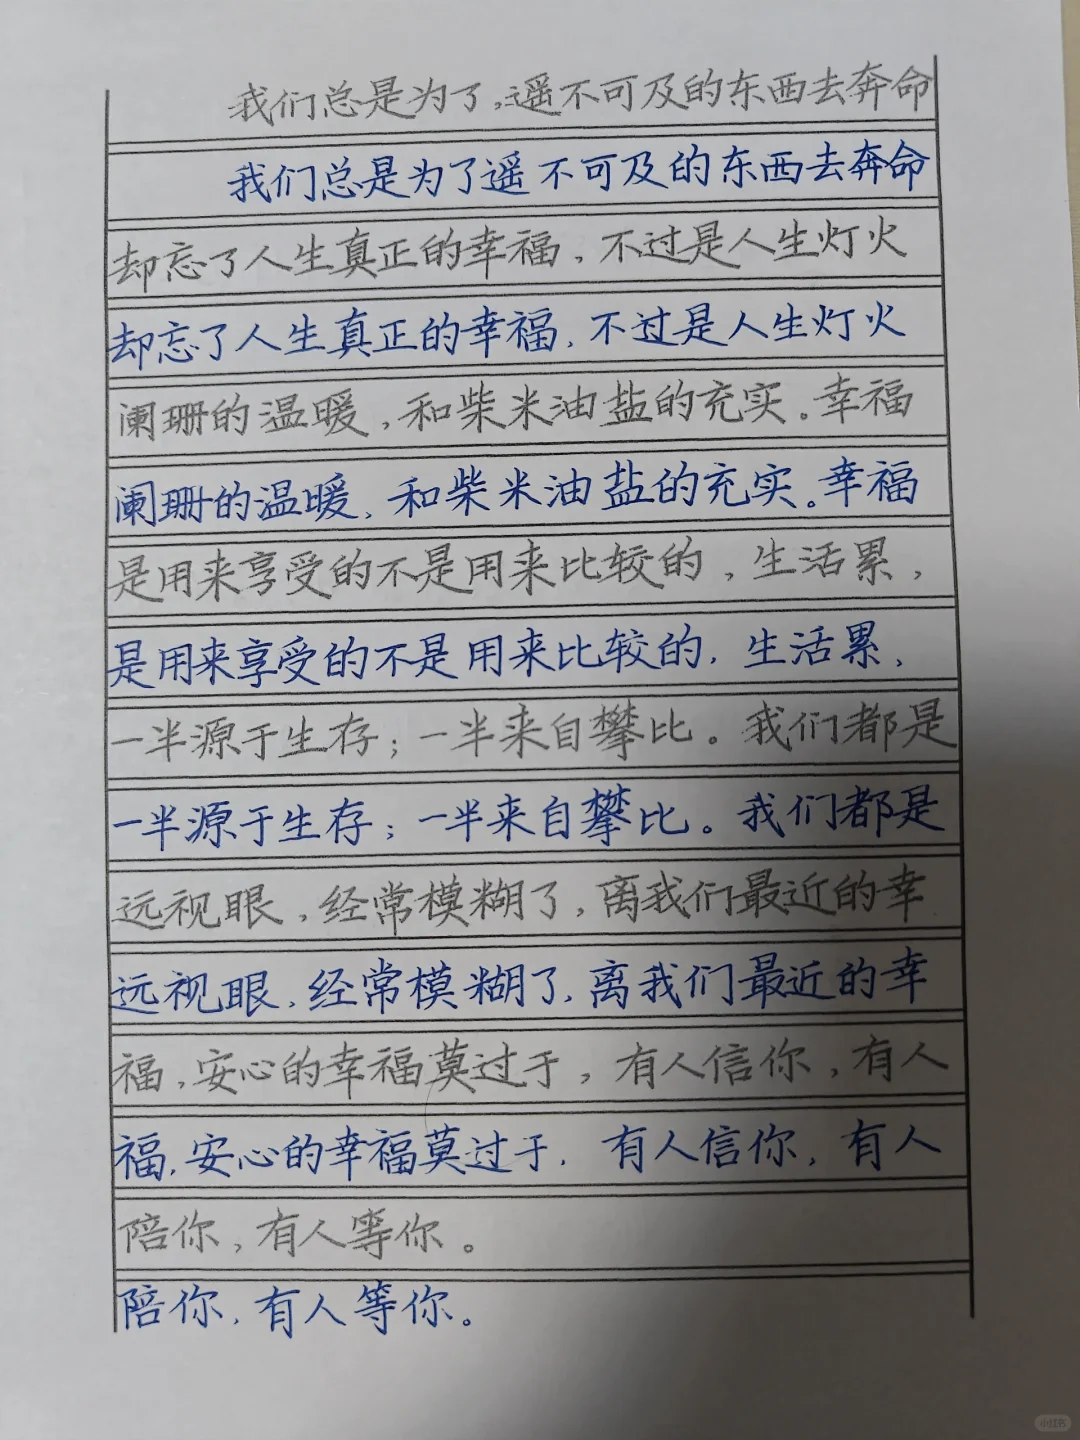 我们总是为了,遥不可及的东西去奔命
我们总是为了遥不可及的东西去奔命
却忘了人生真正的幸福,不过是人生灯火
却忘了人生真正的幸福,不过是人生灯火
阑珊的温暖,和柴米油盐的充实。幸福
阑珊的温暖,和柴米油盐的充实。幸福
是用来享受的不是用来比较的,生活累,
是用来享受的不是用来比较的,生活累,
一半源于生存;一半来自攀比。我们都是
一半源于生存;一半来自攀比。我们都是
远视眼,经常模糊了,离我们最近的幸
远视眼,经常模糊了,离我们最近的幸
福,安心的幸福莫过于,有人信你,有人
福,安心的幸福莫过于,有人信你,有人
陪你,有人等你。
陪你,有人等你。